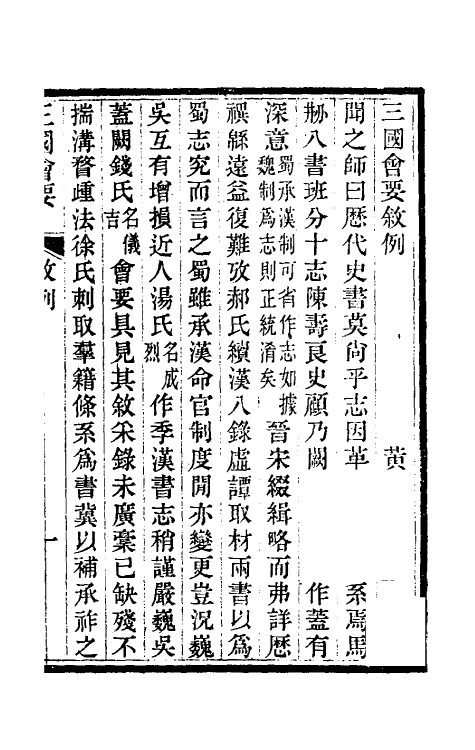 三國會要敘例 黃
聞之師曰歷代史書莫尙乎志因革 系焉馬
刱八書班分十志陳壽良史顧乃闕 作蓋有
深意蜀承漢制可省作志如據魏制爲志則正統淆矣晉宋綴緝略而弗詳歷
禩緜遠益復難攷郝氏續漢八錄虛譚取材兩書以爲
蜀志究而言之蜀雖承漢命官制度閒亦變更豈況巍
吳互有增損近人湯氏名成烈作季漢書志稍謹嚴巍吳
蓋闕錢氏名儀吉會要具見其敘采錄未廣稾已缺殘不
揣溝瞀踵法徐氏刺取羣籍條系爲書冀以補承祚之
三國會要 敘例 一